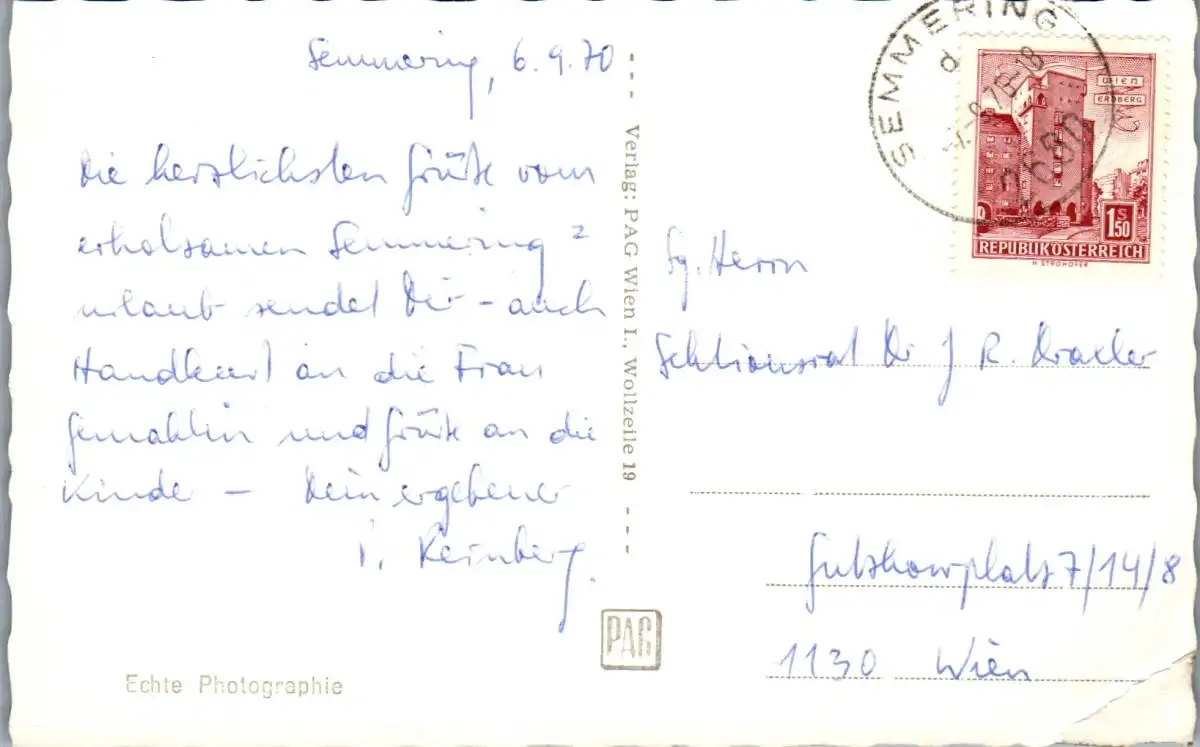 Semmering, 6.9.70
Die herzlichsten Grüße vom
erholsamen Semmering=
urlaub sendet Dir - auch
Handkuss an die Frau
Gemahlin und Grüße an die
Kinder - Dein ergebener
Reinberg
Echte Photographie
Verlag: PAG Wien I., Wollzeile 19
PAG
SEMMERING
d
2680
WIEN
ERDBERG
1 S 50
REPUBLIK ÖSTERREICH
H. STROHOFER
Sg. Herrn
Sektionsrat Dr J R. Draxler
Gutzkowplatz 7/14/8
1130 Wien